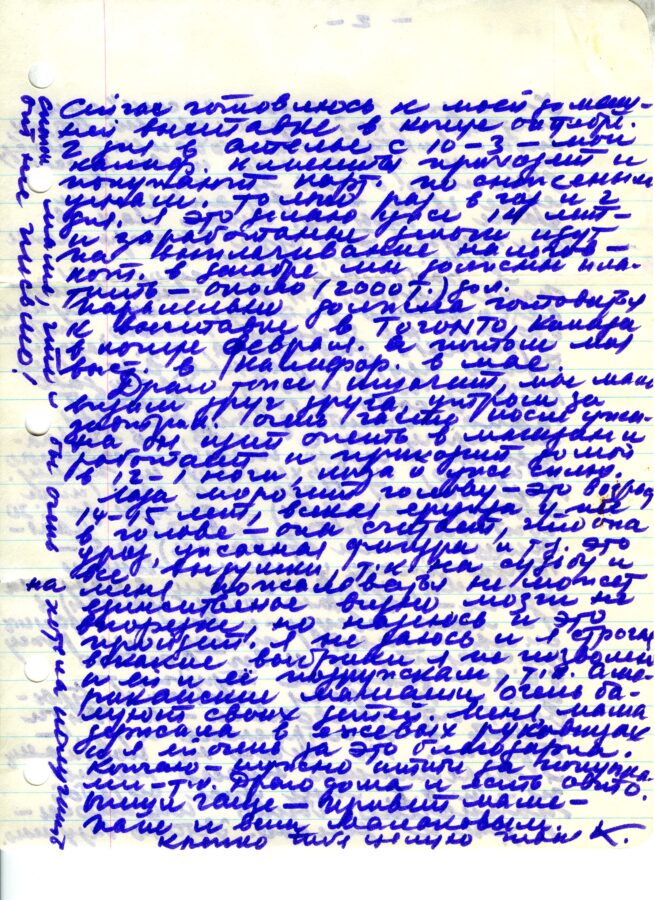 - 2 -
Сейчас готовлюсь к моей домаш-
ней выставке в конце октября.
2 дня в ателье с 10-3 - мои
клиенты приходят и
покупают карт. по сниженным
ценам. Только раз в год и 2
дня. Я это делаю уже 14 лет -
и заработанные деньги идут
на выплачивание налогов -
в декабре мы должны пла-
тить - около (2000т.) дол.
Параллельно должна готовить
к выставке в Торонто, Канада
в конце февраля. а потом
выст. в Калифор. в мае.
Драго тоже мы мало
видим друг друга утром за
завтраком. Очень часто после ужи-
на он идет опять в магазин и
работает и приходит домой
в 12-1 ночи, когда я уже сплю.
морочит голову - это возраст
14-15 лет, всякая ерунда у нее
в голове - она считает, что она
урод, ужасная фигура и т.д. это
все т.к. на судьбу и
меня пожаловаться не может
единственное видно мозги не
в порядке, но надеюсь и это
пройдет, я не даюсь и я строгая
всякие выбрики я не позволяю
и ей и её подружкам, т.к. аме-
риканские мамаши очень ба-
луют своих детей. Меня мама
держала в ежовых рукавицах
и я ей очень за это благодарна.
Кончаю - нужно идти за покупка-
ми - т.к. Драго дома и есть авто.
Пиши чаще - привет маме -
папе и всем
Крепко тебя целую твоя К.
на хотела получить
от нее письмо!